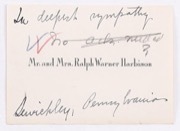 In deepest sympathy.
Who
?
Mr. and Mrs. Ralph Warner Harbison
Sewickley, Pennsylvania